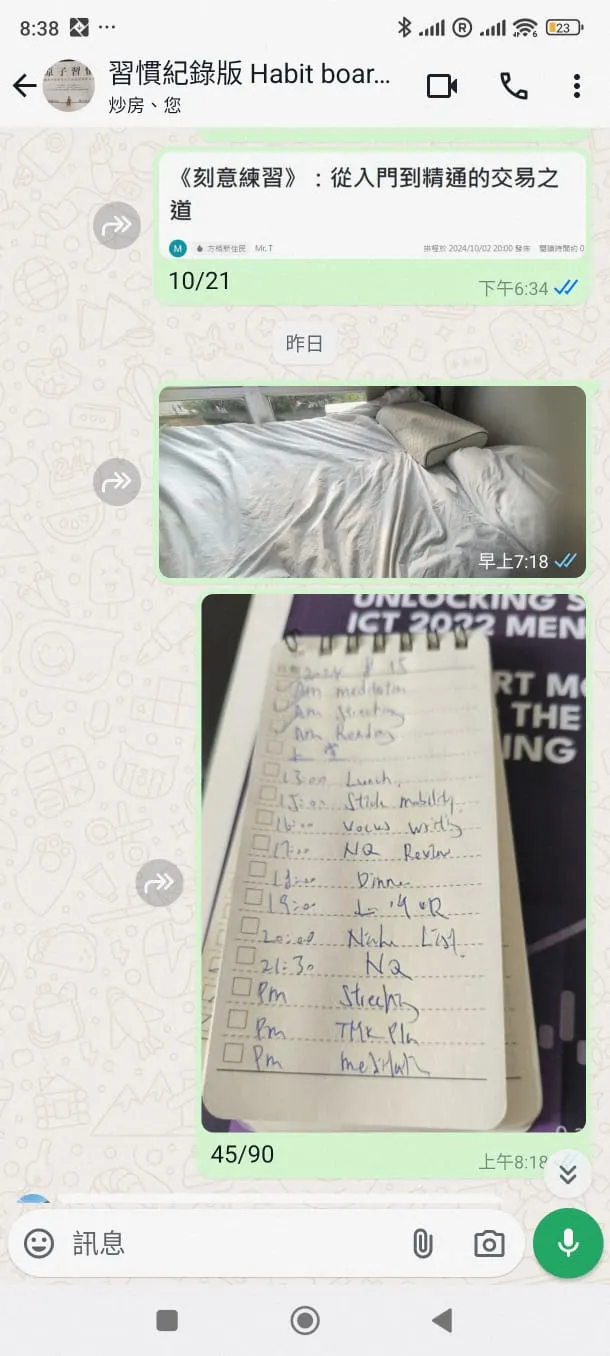 8:38
23
習慣紀錄版 Habit boar...
炒房、您
《刻意練習》：從入門到精通的交易之
道
M 方格新住民 Mr.T 排程於 2024/10/02 20:00 發佈
10/21 下午6:34
昨日
早上7:18
UNLOCKING S
ICT 2022 MEN
RT M
THE
ING
2024 8 15
Am meditation
Am Streching
Am Reading
13:00 Lunch
15:00 Stick mobility
16:00 writing
17:00 NQ Review
18:00 Dinner
19:00
20:00 List
21:30 NQ
Pm Streching
Pm TMR Pln
Pm
45/90 上午8:18
訊息